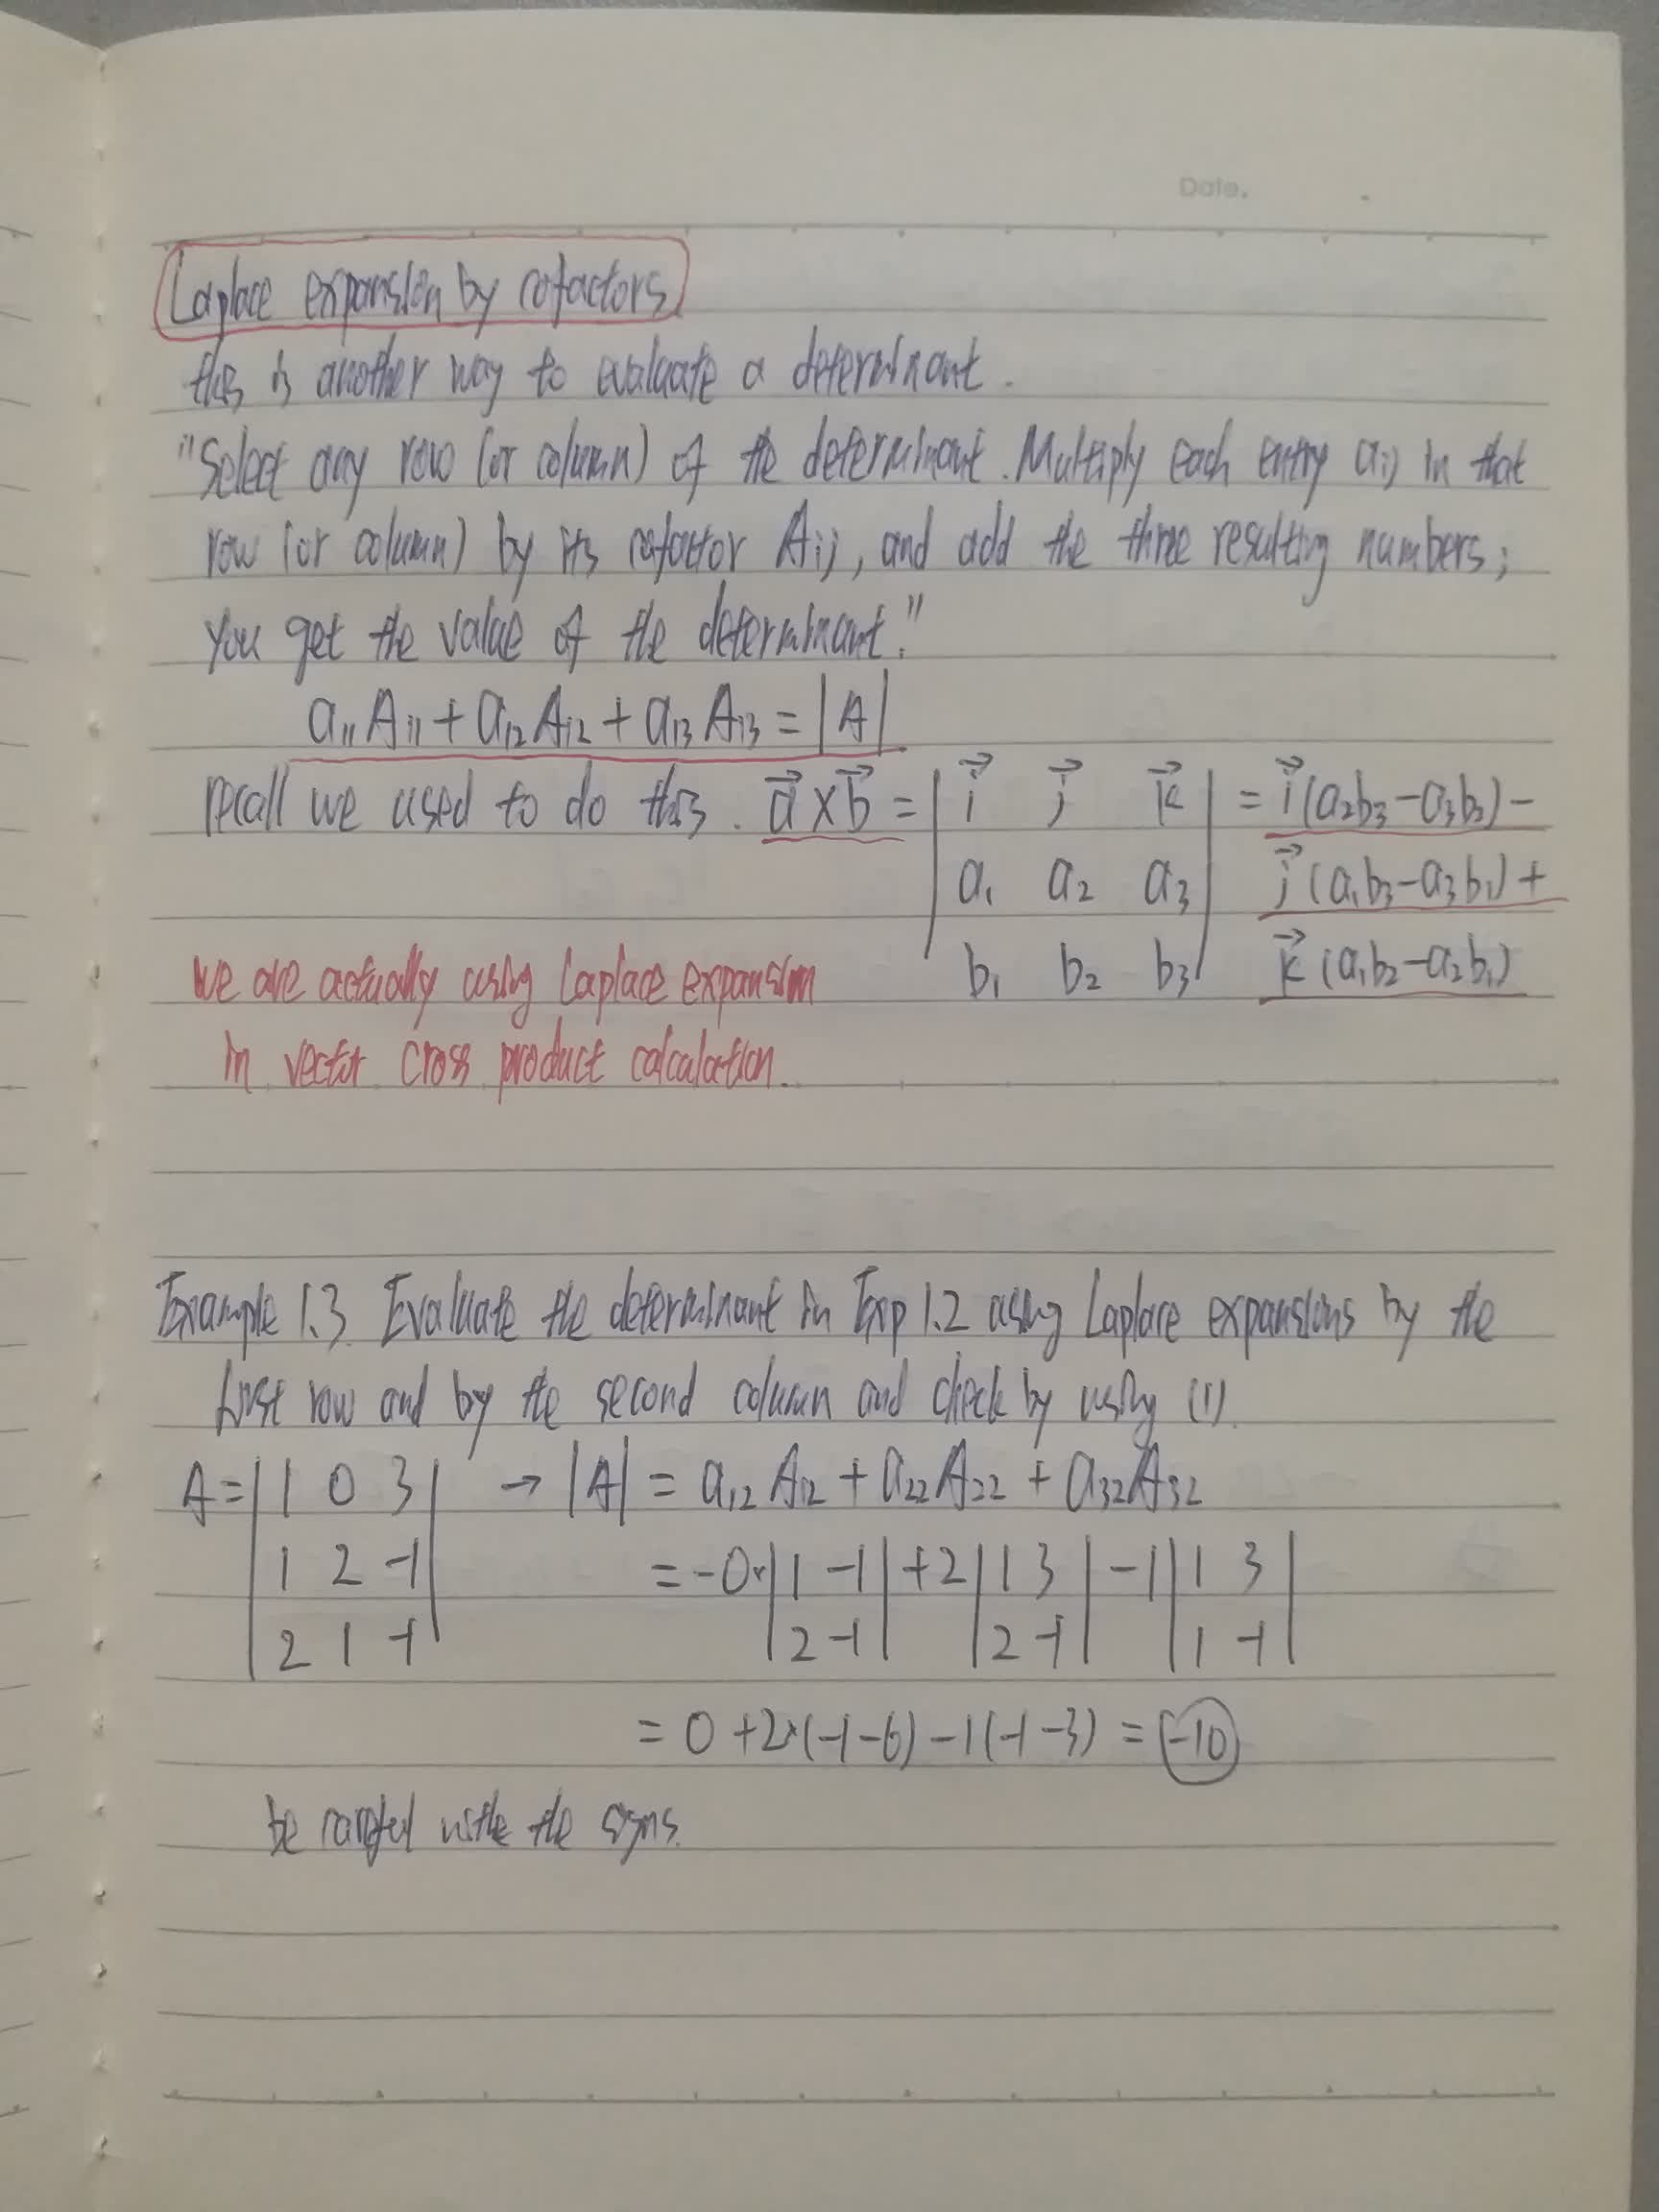 Date.
Laplace expansion by cofactors
this is another way to evaluate a determinant.
"Select any row (or column) of the determinant. Multiply each entry aij in that
row (or column) by its cofactor Aij, and add the three resulting numbers;
you get the value of the determinant."
a₁₁A₁₁ + a₁₂A₁₂ + a₁₃A₁₃ = |A|
recall we used to do this. a⃗ × b⃗ = | i⃗ j⃗ k⃗ | = i⃗(a₂b₃-a₃b₂) -
| a₁ a₂ a₃ | j⃗(a₁b₃-a₃b₁) +
| b₁ b₂ b₃ | k⃗(a₁b₂-a₂b₁)
we are actually using Laplace expansion
in vector cross product calculation.
Example 1.3. Evaluate the determinant in Exp 1.2 using Laplace expansions by the
first row and by the second column and check by using (1).
A = | 1 0 3 | → |A| = a₁₂A₁₂ + a₂₂A₂₂ + a₃₂A₃₂
| 1 2 -1 | = -0·| 1 -1 | +2| 1 3 | -1| 1 3 |
| 2 1 -1 | | 2 -1 | | 2 -1 | | 1 -1 |
= 0 + 2·(-1-6) - 1(-1-3) = -10
be careful withe the signs.